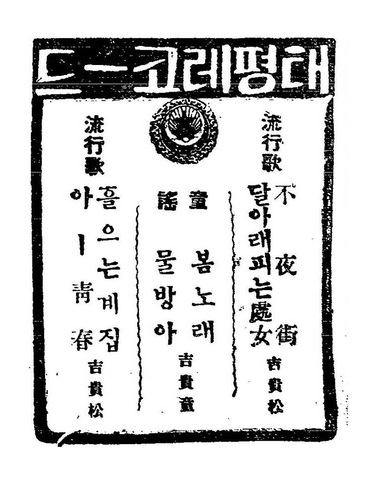 태평레코ー드
流行歌
不夜街
달아래피는處女
吉貴松
童謠
봄노래
물방아
吉貴童
流行歌
흘으는게집
아ー靑春
吉貴松